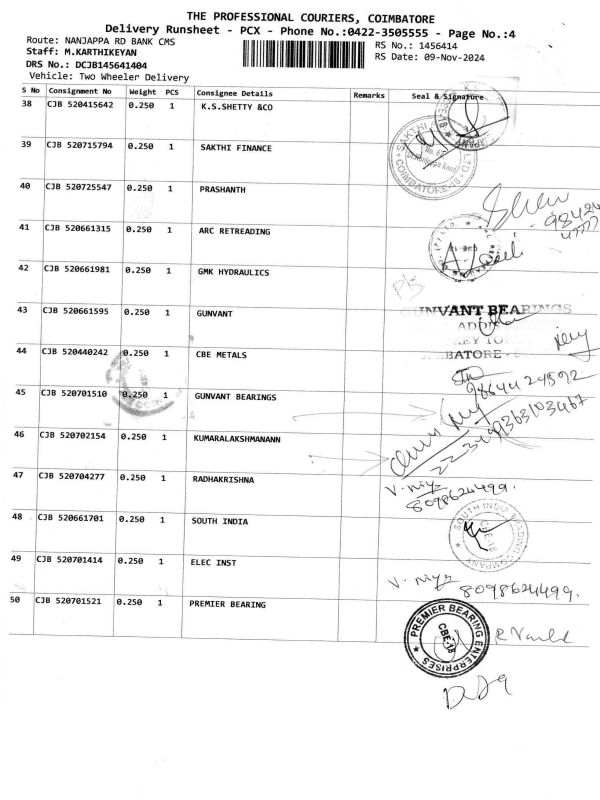 THE PROFESSIONAL COURIERS, COIMBATORE
Delivery Runsheet - PCX - Phone No.:0422-3505555 - Page No.:4
Route: NANJAPPA RD BANK CMS
RS No.: 1456414
Staff: M.KARTHIKEYAN
RS Date: 09-Nov-2024
DRS No.: DCJB145641404
Vehicle: Two Wheeler Delivery
S No Consignment No Weight PCS Consignee Details Remarks Seal & Signature
38 CJB 520415642 0.250 1 K.S.SHETTY &CO
39 CJB 520715794 0.250 1 SAKTHI FINANCE
40 CJB 520725547 0.250 1 PRASHANTH
41 CJB 520661315 0.250 1 ARC RETREADING
42 CJB 520661981 0.250 1 GMK HYDRAULICS
43 CJB 520661595 0.250 1 GUNVANT
GUNVANT BEARINGS
44 CJB 520440242 0.250 1 CBE METALS
45 CJB 520701510 0.250 1 GUNVANT BEARINGS
9363103467
46 CJB 520702154 0.250 1 KUMARALAKSHMANANN
47 CJB 520704277 0.250 1 RADHAKRISHNA
8098624499.
48 CJB 520661701 0.250 1 SOUTH INDIA
SOUTH INDIA TRADING COMPANY
CBE-18
49 CJB 520701414 0.250 1 ELEC INST
8098624499.
50 CJB 520701521 0.250 1 PREMIER BEARING
PREMIER BEARING ENTERPRISES
CBE-18